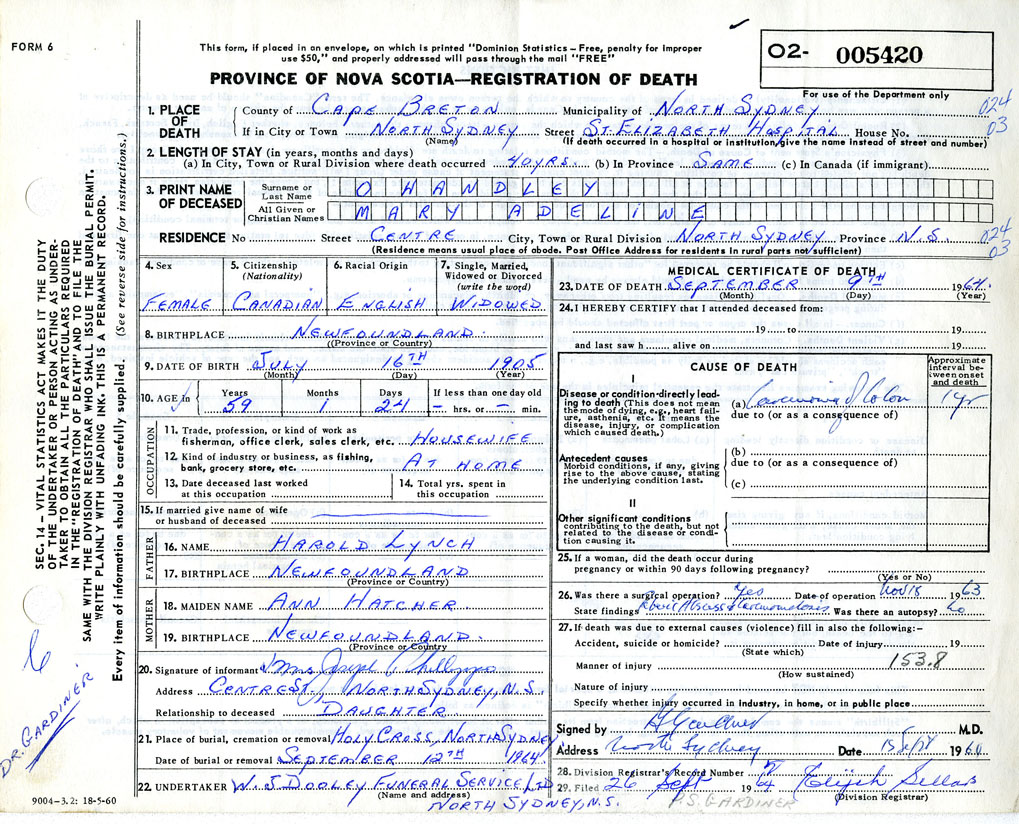 FORM 6
This form, if placed in an envelope, on which is printed "Dominion Statistics – Free, penalty for improper
use $50," and properly addressed will pass through the mail "FREE"
PROVINCE OF NOVA SCOTIA—REGISTRATION OF DEATH
O2- 005420
For use of the Department only
SEC. 14 – VITAL STATISTICS ACT MAKES IT THE DUTY
OF THE UNDERTAKER OR PERSON ACTING AS UNDER-
TAKER TO OBTAIN ALL THE PARTICULARS REQUIRED
IN THE "REGISTRATION OF DEATH" AND TO FILE THE
SAME WITH THE DIVISION REGISTRAR WHO SHALL ISSUE THE BURIAL PERMIT.
WRITE PLAINLY WITH UNFADING INK. THIS IS A PERMANENT RECORD.
Every item of information should be carefully supplied. (See reverse side for instructions.)
DR. GARDINER
1. PLACE OF DEATH
County of CAPE BRETON Municipality of NORTH SYDNEY 024
If in City or Town NORTH SYDNEY Street ST. ELIZABETH HOSPITAL House No. 03
(Name) (If death occurred in a hospital or institution, give the name instead of street and number)
2. LENGTH OF STAY (in years, months and days)
(a) In City, Town or Rural Division where death occurred 40 YRS. (b) In Province SAME (c) In Canada (if immigrant)
3. PRINT NAME OF DECEASED
Surname or Last Name O HANDLEY
All Given or Christian Names MARY ADELINE
RESIDENCE No Street CENTRE City, Town or Rural Division NORTH SYDNEY Province N.S. 024
(Residence means usual place of abode. Post Office Address for residents in rural parts not sufficient) 03
4. Sex FEMALE
5. Citizenship (Nationality) CANADIAN
6. Racial Origin ENGLISH
7. Single, Married, Widowed or Divorced (write the word) WIDOWED
8. BIRTHPLACE NEWFOUNDLAND.
(Province or Country)
9. DATE OF BIRTH JULY 16TH 1905
(Month) (Day) (Year)
10. AGE in Years 59 Months 1 Days 24 If less than one day old – hrs. or – min.
OCCUPATION
11. Trade, profession, or kind of work as
fisherman, office clerk, sales clerk, etc. HOUSEWIFE
12. Kind of industry or business, as fishing,
bank, grocery store, etc. AT HOME
13. Date deceased last worked
at this occupation
14. Total yrs. spent in
this occupation
15. If married give name of wife
or husband of deceased
FATHER
16. NAME HAROLD LYNCH
17. BIRTHPLACE NEWFOUNDLAND
(Province or Country)
MOTHER
18. MAIDEN NAME ANN HATCHER
19. BIRTHPLACE NEWFOUNDLAND.
(Province or Country)
20. Signature of informant Mrs. Joseph
Address CENTRE ST. NORTH SYDNEY, N.S.
Relationship to deceased DAUGHTER
21. Place of burial, cremation or removal HOLY CROSS, NORTH SYDNEY
Date of burial or removal SEPTEMBER 12TH 1964
22. UNDERTAKER W. J. DOOLEY FUNERAL SERVICE LTD
(Name and address)
NORTH SYDNEY, N.S.
9004–3.2: 18-5-60
MEDICAL CERTIFICATE OF DEATH
23. DATE OF DEATH SEPTEMBER 9TH 1964.
(Month) (Day) (Year)
24. I HEREBY CERTIFY that I attended deceased from:
19 to 19
and last saw h alive on 19
CAUSE OF DEATH
Approximate interval between onset and death
I
Disease or condition directly leading to death (This does not mean the mode of dying, e.g., heart failure, asthenia, etc. It means the disease, injury, or complication which caused death.)
(a) Carcinoma of Colon 1 yr
due to (or as a consequence of)
Antecedent causes
Morbid conditions, if any, giving rise to the above cause, stating the underlying condition last.
(b)
due to (or as a consequence of)
(c)
II
Other significant conditions
contributing to the death, but not related to the disease or condition causing it.
25. If a woman, did the death occur during
pregnancy or within 90 days following pregnancy?
(Yes or No)
26. Was there a surgical operation? Yes Date of operation Nov 18 1963
State findings Was there an autopsy? No
27. If death was due to external causes (violence) fill in also the following:–
Accident, suicide or homicide? Date of injury 19
(State which)
Manner of injury 153.8
(How sustained)
Nature of injury
Specify whether injury occurred in industry, in home, or in public place
Signed by M.D.
Address North Sydney Date 1964
28. Division Registrar's Record Number
29. Filed 26 Sept 1964 Elijah Sellars
(Division Registrar)
P.S. GARDINER